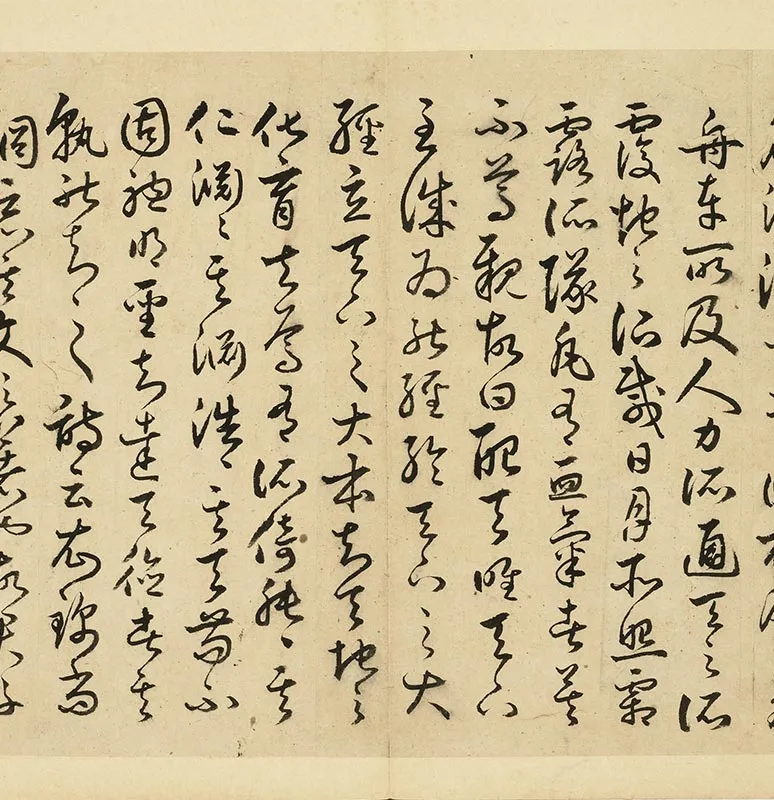 舟車所及人力所通天之所
覆地之所載日月所照霜
露所隊凡有血氣者莫
不尊親故曰配天唯天下
至誠為能經綸天下之大
經立天下之大本知天地之
化育夫焉有所倚肫〻其
仁淵〻其淵浩〻其天苟不
固聰明聖知達天德者其
孰能知之詩云衣錦尚
絅惡其文之著也故君子